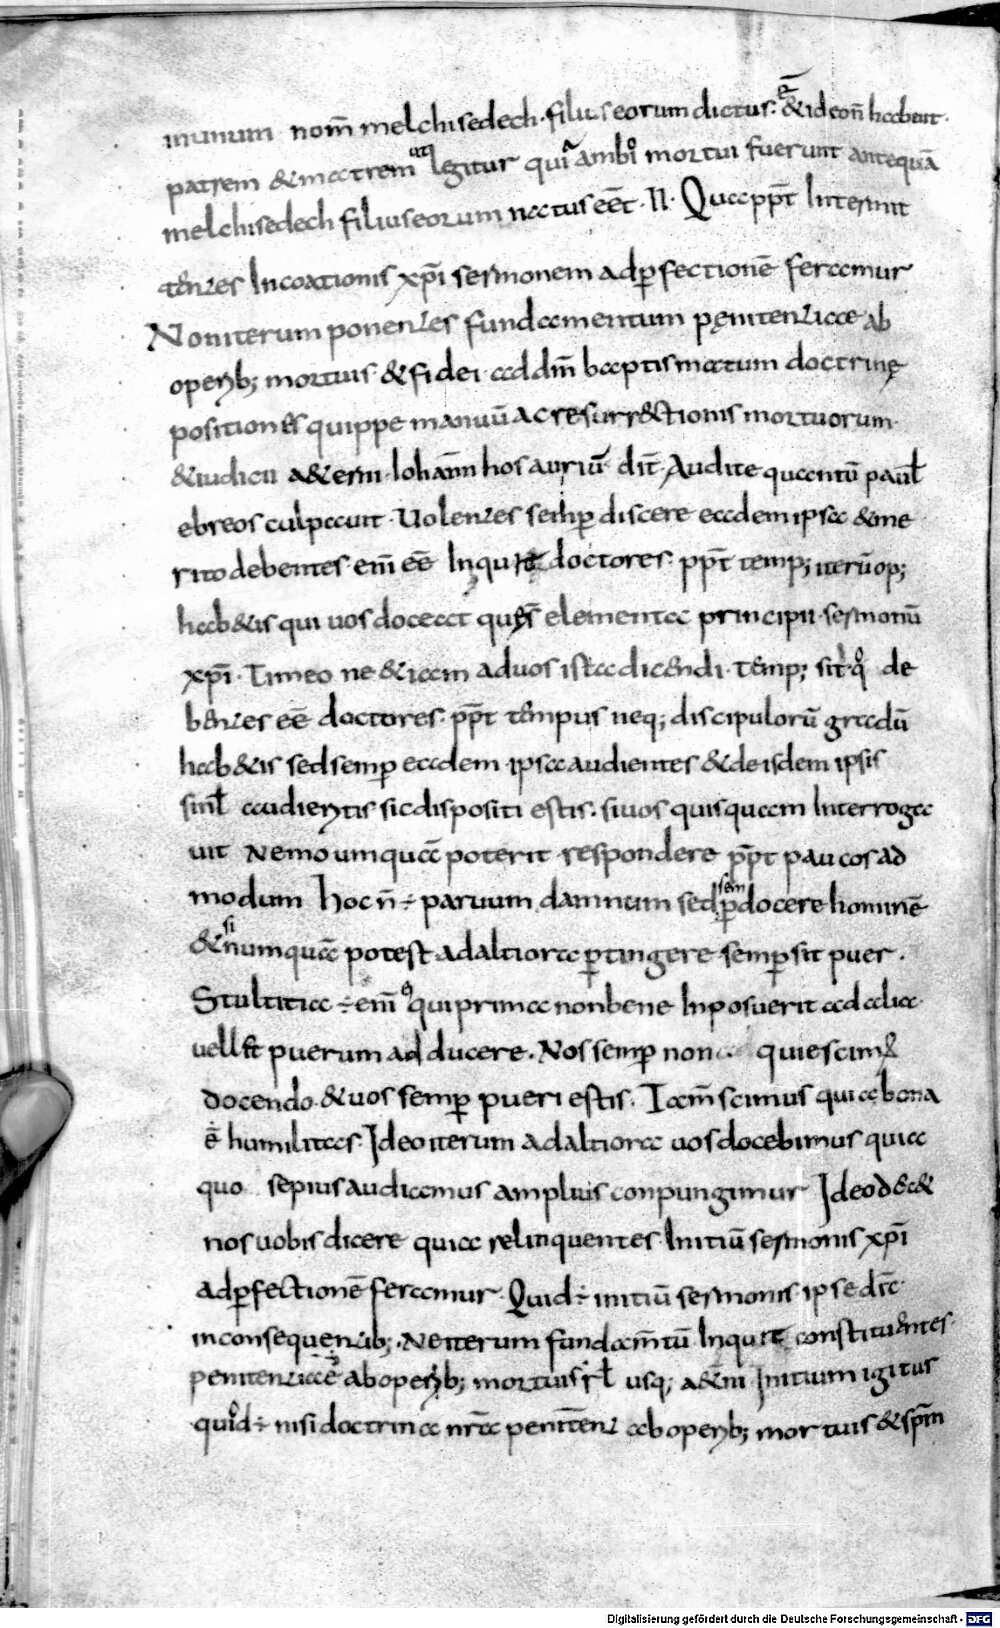 in unum nom̄ melchisedech · filius eorum dictus · ē & ideo n̄ habent ·
patrem & matrem ut legitur quia ambo mortui fuerunt antequā
melchisedech filius eorum natus eēt · II · Quapp̄t Intermit
tentes Incoationis xp̄i sermonem ad perfectionē feramur
Non iterum ponentes fundamentum pęnitentiae ab
operib; mortuis & fidei ad dm̄ baptismatum doctrinę
positiones quippe manuū ac resurr&ctionis mortuorum
& iudicii a&erni · Iohann̄ hos auriū dīt · Audite quantū paul̄
ebreos culpauit · Uolentes semp discere eadem ipsa & me
rito debentes · eni̅ eē Inquit doctores · pp̄t temp; iterū op;
hab&is qui uos doceat quęs̄ elementa principii · sermonū
xp̄i · Timeo ne & iam ad uos ista dicendi · temp; sit · qo de
bentes eē doctores · pp̄t tempus neq; discipulorū gradū
hab&is sed semp eadem · ipsa audientes & de isdem ipsis
simł audientis sic dispositi estis · si uos quisquam Interroga
uit Nemo umquā poterit respondere pp̄t paucos ad
modum hoc n̄ ÷ paruum damnum sed sem p docere hominē
& si numquā potest ad altiora pertingere semp sit puer ·
Stultitia ÷ eni̅ qui prima non bene Inposuerit ad alia
uell& puerum ad ducere · Nos semp non quiescim;
docendo · & uos semp pueri estis · Iam̄ scimus quia bona
ē humilitas · Ideo iterum ad altiora uos docebimus quia
quo sepius audiamus amplius conpungimur Ideo dec&
nos uobis dicere quia relinquentes · Initiū sermonis xp̄i
ad perfectionē feramur · Quid ÷ initiū sermonis · ipse dīc
in consequentib; · Ne iterum fundam̄tū Inquit constituentes ·
penitentiae ab operib; mortuis · r̄ł usq; a&ni Initium igitur
quid ÷ nisi doctrina nr̄a penitent ab operib; mortuis & spm̄